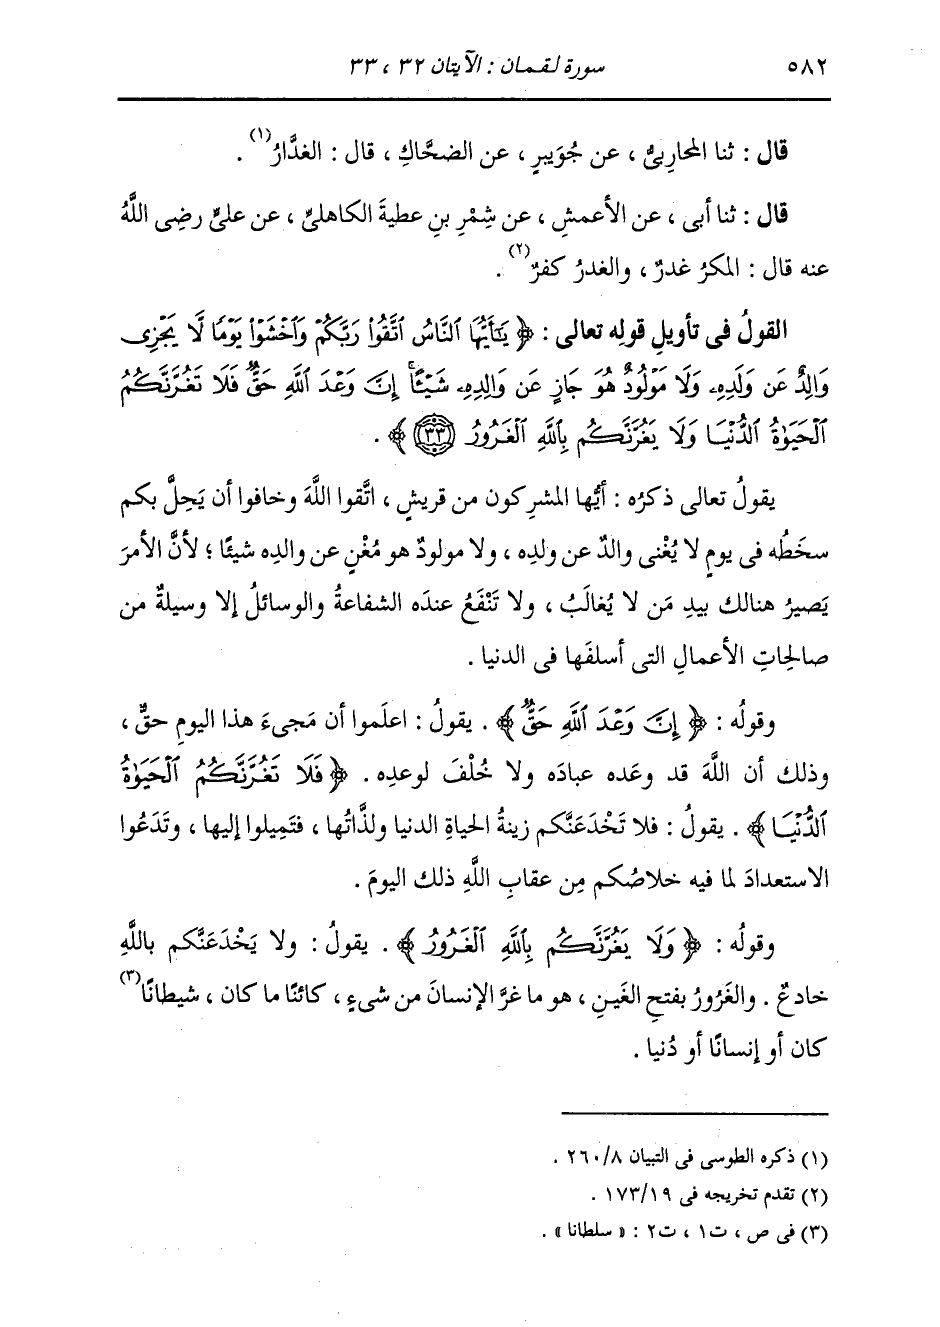 ٥٨٢ سورة لقمان : الآيتان ٣٢ ، ٣٣
قال : ثنا المحاربىُّ ، عن جُوَيبرٍ ، عن الضحَّاكِ ، قال : الغدَّارُ(١) .
قال : ثنا أبى ، عن الأعمشِ ، عن شِمْرِ بنِ عطيةَ الكاهلىِّ ، عن علىٍّ رضِى اللَّهُ
عنه قال : المكرُ غدرٌ ، والغدرُ كفرٌ(٢) .
القولُ فى تأويلِ قولِه تعالى : ﴿ يَٰٓأَيُّهَا ٱلنَّاسُ ٱتَّقُوا۟ رَبَّكُمْ وَٱخْشَوْا۟ يَوْمًا لَّا يَجْزِى
وَالِدٌ عَن وَلَدِهِۦ وَلَا مَوْلُودٌ هُوَ جَازٍ عَن وَالِدِهِۦ شَيْـًٔا ۚ إِنَّ وَعْدَ ٱللَّهِ حَقٌّ ۖ فَلَا تَغُرَّنَّكُمُ
ٱلْحَيَوٰةُ ٱلدُّنْيَا وَلَا يَغُرَّنَّكُم بِٱللَّهِ ٱلْغَرُورُ ٣٣ ﴾ .
يقولُ تعالى ذكرُه : أيُّها المشرِكون من قريشٍ ، اتَّقوا اللَّهَ وخافوا أن يَحِلَّ بكم
سخَطُه فى يومٍ لا يُغْنى والدٌ عن ولدِه ، ولا مولودٌ هو مُغْنٍ عن والدِه شيئًا ؛ لأنَّ الأمرَ
يَصيرُ هنالك بيدِ مَن لا يُغالَبُ ، ولا تَنْفَعُ عندَه الشفاعةُ والوسائلُ إلا وسيلةٌ من
صالحاتِ الأعمالِ التى أسلفَها فى الدنيا .
وقولُه : ﴿ إِنَّ وَعْدَ ٱللَّهِ حَقٌّ ۖ ﴾ . يقولُ : اعلَموا أن مَجىءَ هذا اليومِ حقٌّ ،
وذلك أن اللَّهَ قد وعَده عبادَه ولا خُلْفَ لوعدِه . ﴿ فَلَا تَغُرَّنَّكُمُ ٱلْحَيَوٰةُ
ٱلدُّنْيَا ﴾ . يقولُ : فلا تَخْدَعَنَّكم زينةُ الحياةِ الدنيا ولذَّاتُها ، فتَمِيلوا إليها ، وتَدَعُوا
الاستعدادَ لما فيه خلاصُكم مِن عقابِ اللَّهِ ذلك اليومَ .
وقولُه : ﴿ وَلَا يَغُرَّنَّكُم بِٱللَّهِ ٱلْغَرُورُ ﴾ . يقولُ : ولا يَخْدَعَنَّكم باللَّهِ
خادعٌ . والغَرُورُ بفتحِ الغَينِ ، هو ما غرَّ الإنسانَ من شىءٍ ، كائنًا ما كان ، شيطانًا(٣)
كان أو إنسانًا أو دُنيا .
(١) ذكره الطوسى فى التبيان ٢٦٠/٨ .
(٢) تقدم تخريجه فى ١٧٣/١٩ .
(٣) فى ص ، ت١ ، ت٢ : « سلطانا » .